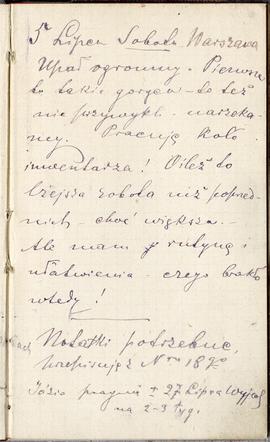 5 Lipca Sobota Warszawa
Upał ogromny. Pierwsze
to takie gorąco - to też
nie przywykli - narzeka-
my. Pracuję koło
inwentarza! O ileż to
lżejsza robota niż poprzed-
nich - choć większa -
Ale mam rutynę i
ułatwienia - czego brakło
wtedy!
Notatki potrzebne,
wpisuję z Nru 18go
Józio pragnie ± 27 Lipca wyjech
na 2-3 tyg.